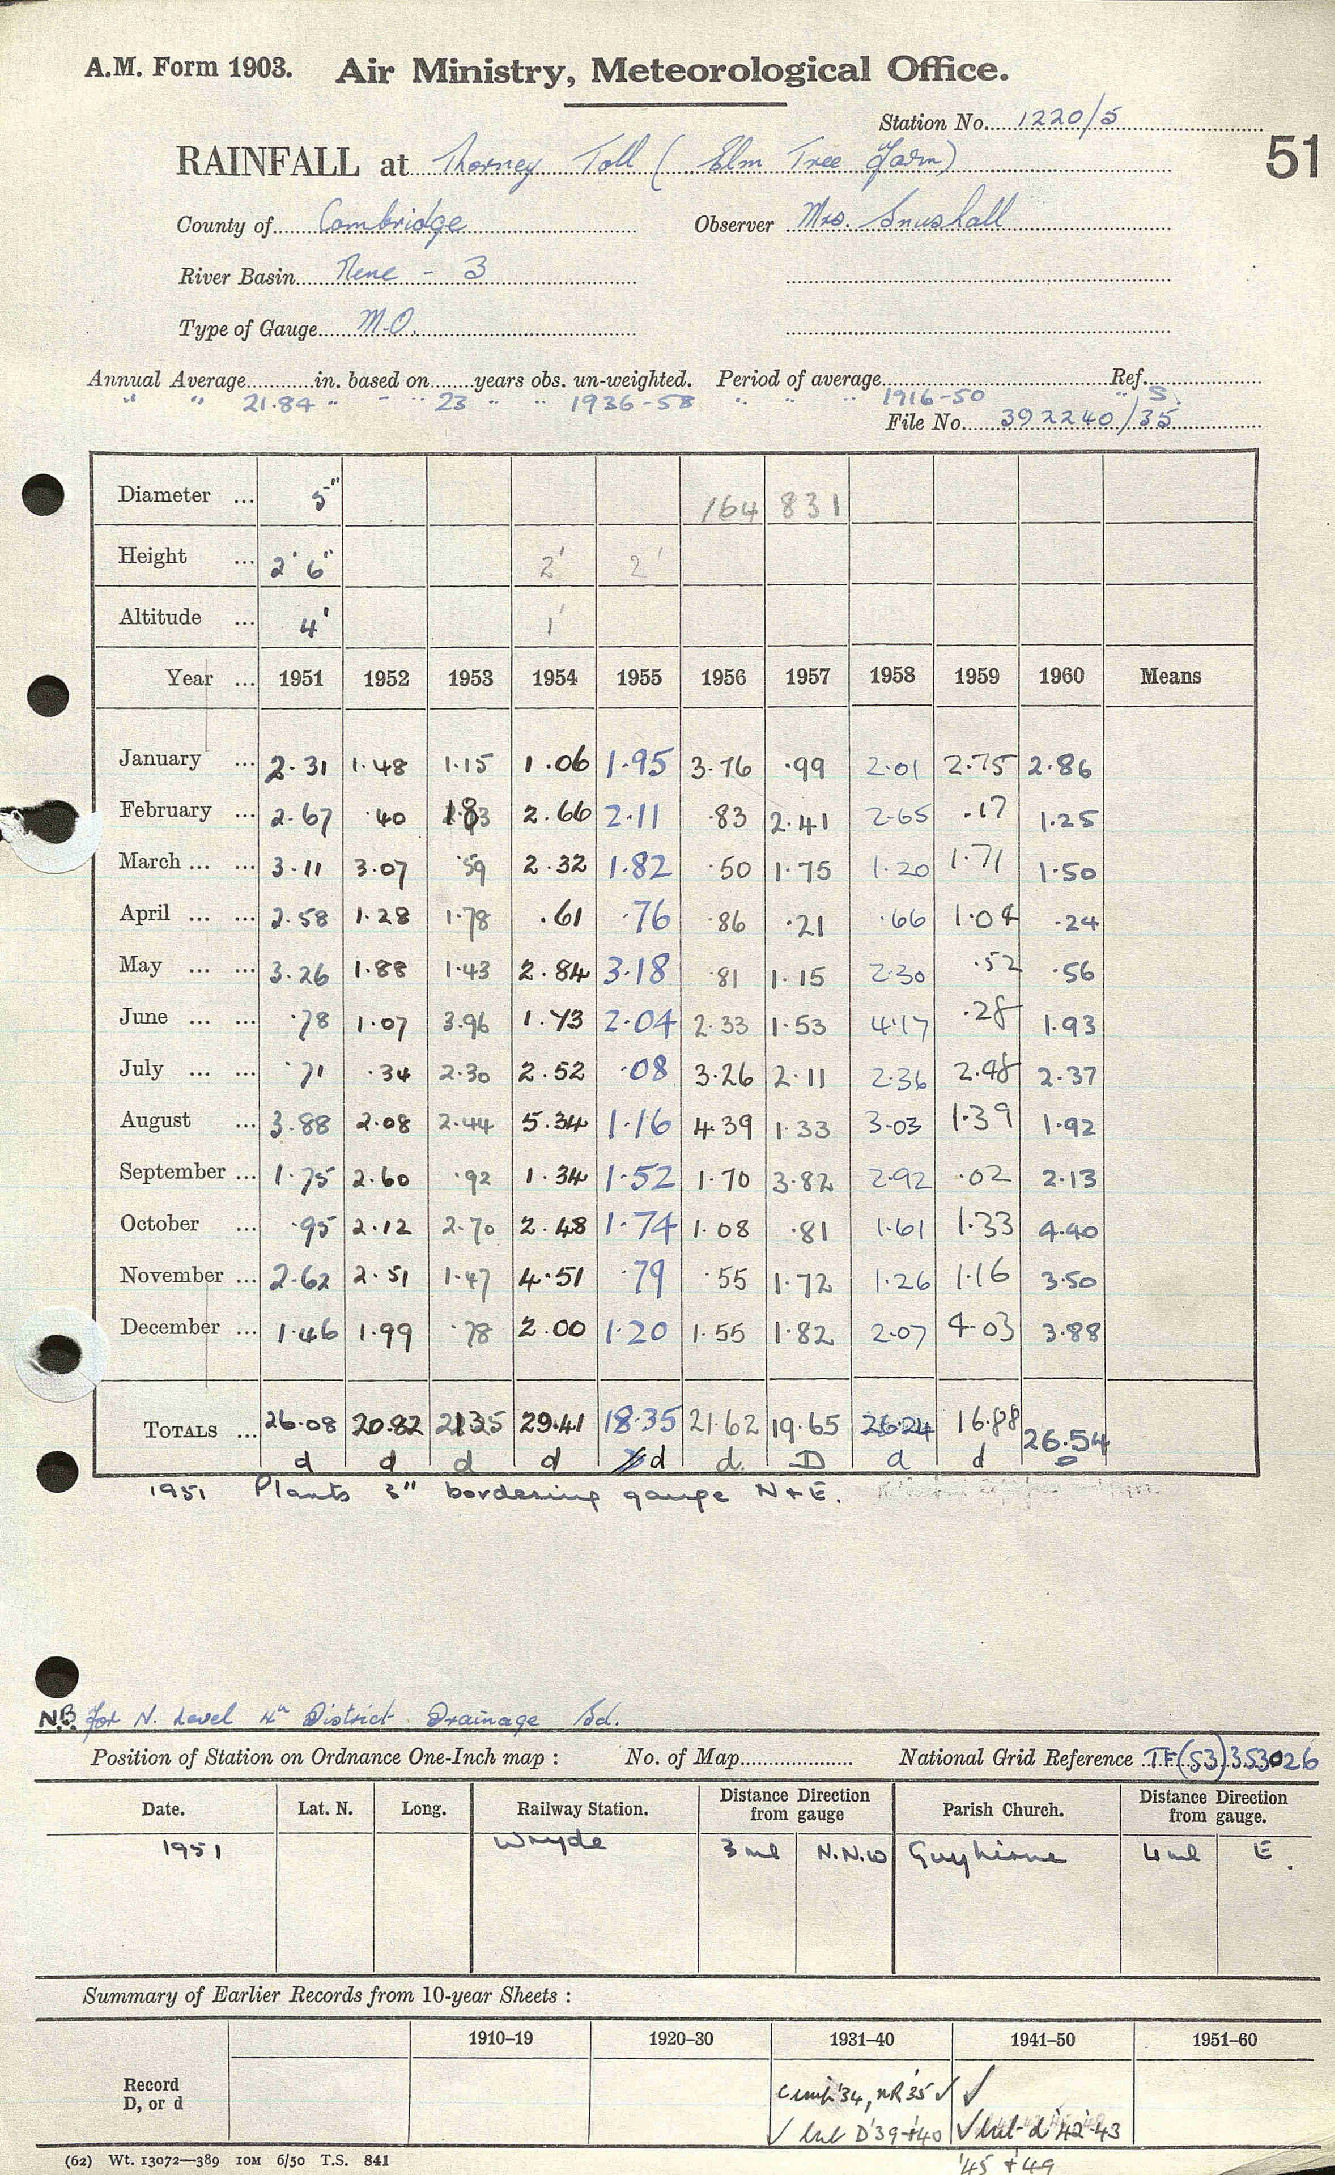 A.M. Form 1903. Air Ministry, Meteorological Office.
Station No. 1220/5
51
RAINFALL at Thorney Toll ( Elm Tree Farm)
County of Cambridge Observer Mrs. Snushall
River Basin Nene - 3
Type of Gauge M.O.
Annual Average in. based on years obs. un-weighted. Period of average Ref.
" " 21.84 " " 23 " " 1936-58 " " " 1916-50 " S.
File No. 392240/35
Diameter ... 5" 164 831
Height ... 2' 6" 2' 2'
Altitude ... 4' 1'
Year ... 1951 1952 1953 1954 1955 1956 1957 1958 1959 1960 Means
January ... 2.31 1.48 1.15 1.06 1.95 3.76 .99 2.01 2.75 2.86
February ... 2.67 .40 1.83 2.66 2.11 .83 2.41 2.65 .17 1.25
March ... ... 3.11 3.07 .59 2.32 1.82 .50 1.75 1.20 1.71 1.50
April ... ... 2.58 1.28 1.78 .61 .76 .86 .21 .66 1.04 .24
May ... ... 3.26 1.88 1.43 2.84 3.18 .81 1.15 2.30 .52 .56
June ... ... .78 1.07 3.96 1.73 2.04 2.33 1.53 4.17 .28 1.93
July ... ... .71 .34 2.30 2.52 .08 3.26 2.11 2.36 2.48 2.37
August ... 3.88 2.08 2.44 5.34 1.16 4.39 1.33 3.03 1.39 1.92
September ... 1.75 2.60 .92 1.34 1.52 1.70 3.82 2.92 .02 2.13
October ... .95 2.12 2.70 2.48 1.74 1.08 .81 1.61 1.33 4.40
November ... 2.62 2.51 1.47 4.51 .79 .55 1.72 1.26 1.16 3.50
December ... 1.46 1.99 .78 2.00 1.20 1.55 1.82 2.07 4.03 3.88
TOTALS ... 26.08 20.82 21.35 29.41 18.35 21.62 19.65 26.24 16.88 26.54
d d d d d d. D d d D
1951 Plants 3" bordering gauge N & E.
N.B. for N. Level 4th District Drainage Bd.
Position of Station on Ordnance One-Inch map : No. of Map National Grid Reference TF(53)353026
Date. Lat. N. Long. Railway Station. Distance Direction from gauge Parish Church. Distance Direction from gauge.
1951 Wryde 3 ml N.N.W Guyhirne 4 ml E.
Summary of Earlier Records from 10-year Sheets :
1910–19 1920–30 1931–40 1941–50 1951–60
Record
D, or d
'34, nR '35 ✓ ✓
✓ but D '39 + 40 ✓ but d '42 '43
'45 + 49
(62) Wt. 13072—389 10M 6/50 T.S. 841